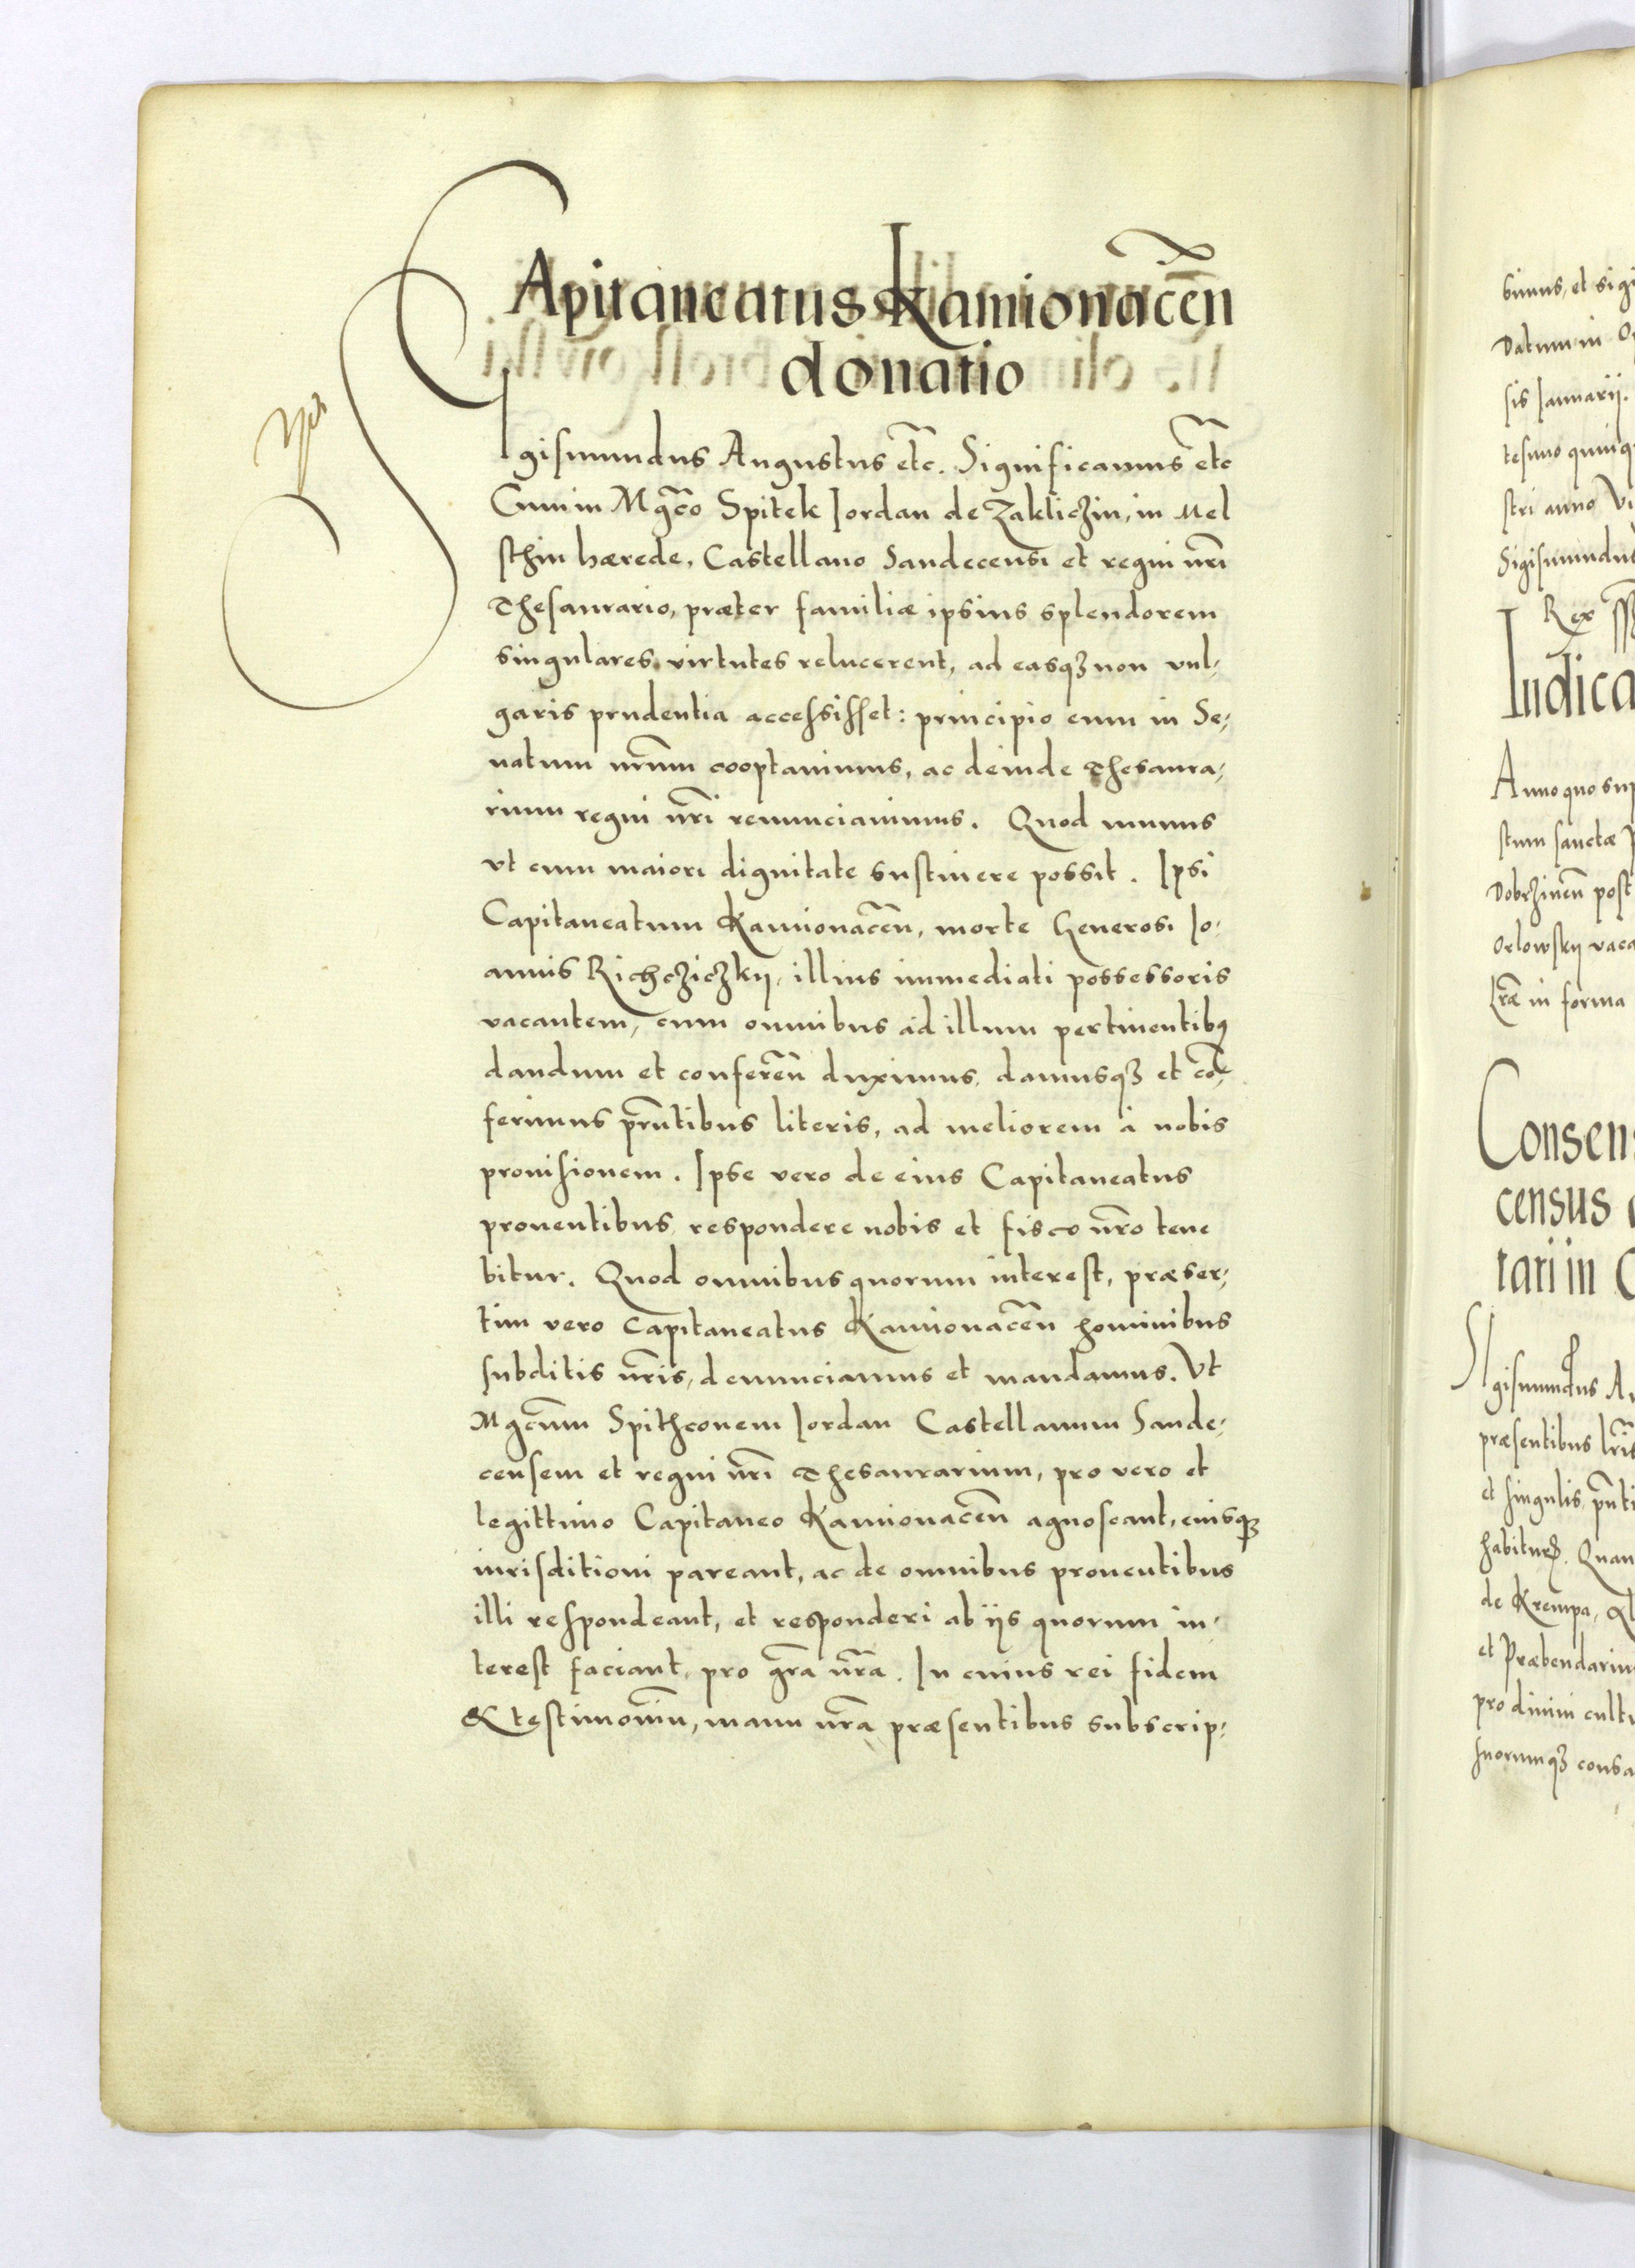 CApitaneatus Kamionaceñ
donatio
SIgismundus Augustus etc̃. Significamus etc̃
Cum in Mgc̃o Spitek Iordan de Zakliczin, in Mel
sthin hærede, Castellano Sandecensi et regni nr̃i
Thesaurario, præter familiæ ipsius splendorem
singulares virtutes relucerent, ad easqȝ non vul-
garis prudentia accessisset: principio eum in Se-
natum nr̃um cooptauimus, ac deinde Thesaura-
rium regni nr̃i renunciauimus. Quod munus
vt cum maiori dignitate sustinere possit. Ipsi
Capitaneatum Kamionaceñ, morte Generosi Io-
annis Richcziczkij, illius immediati possessoris
vacantem, cum omnibus ad illum pertinentibꝰ
dandum et confereñ duximus, damusqȝ et cõ-
ferimus pr̃ntibus literis, ad meliorem à nobis
prouisionem. Ipse vero de eius Capitaneatus
prouentibus respondere nobis et fisco nr̃o tene
bitur. Quod omnibus quorum interest, præser-
tim vero Capitaneatus Kamionaceñ hominibus
subditis nr̃is, denunciamus et mandamus. Vt
Mgc̃um Spithconem Iordan Castellanum Sande-
censem et regni nr̃i Thesaurarium, pro vero et
legittimo Capitaneo Kamionaceñ agnoscant, eiusqȝ
iurisditioni pareant, ac de omnibus prouentibus
illi respondeant, et responderi ab ijs quorum in-
terest faciant, pro gr̃a nr̃a. In cuius rei fidem
& testimoniũ, manu nr̃a præsentibus subscrip-
bimus, et sigi
Datum in
sis Ianuarij.
tesimo quinq
stri anno
Sigismundus
Rex
Iudica
Anno quo sup
stum sanctæ
Dobrzineñ post
Orlowskij vaca
Lr̃æ in forma
Consens
census
tarii in
SIgismundus Au
præsentibus lr̃is
et singulis, pñti
habiturꝭ. Quan
de Krempa,
et Præbendarium
pro diuini cultu
suorumqȝ consa